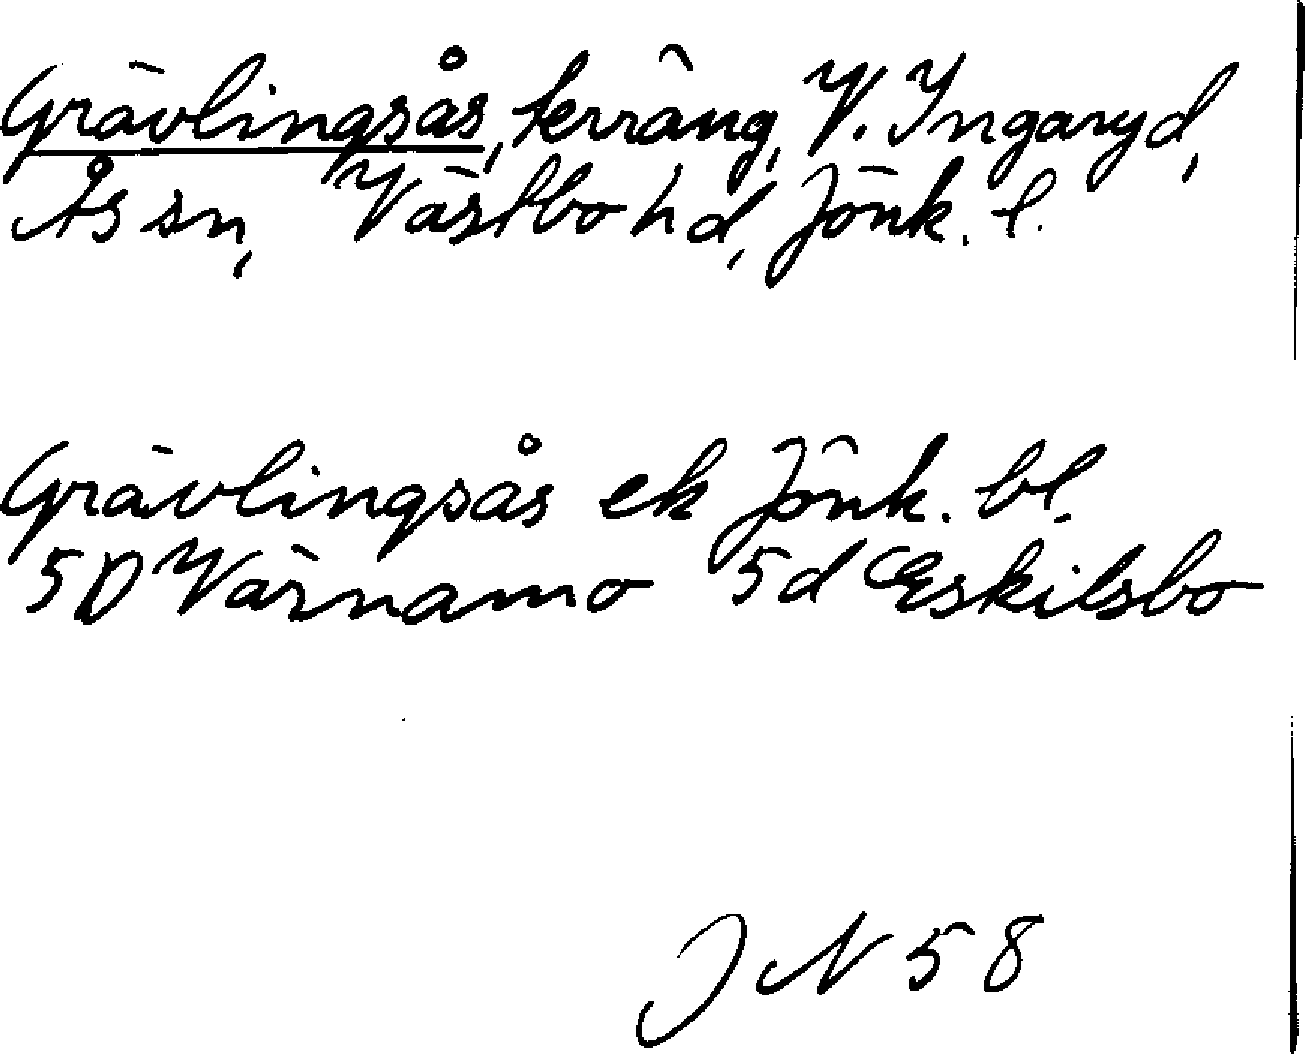 Grävlingsås, terräng, V. Ingaryd,
Ås sn, Västbo hd, Jönk. l.
Grävlingsås ek Jönk. bl.
5D Värnamo 5d Eskilsbo
JN 58